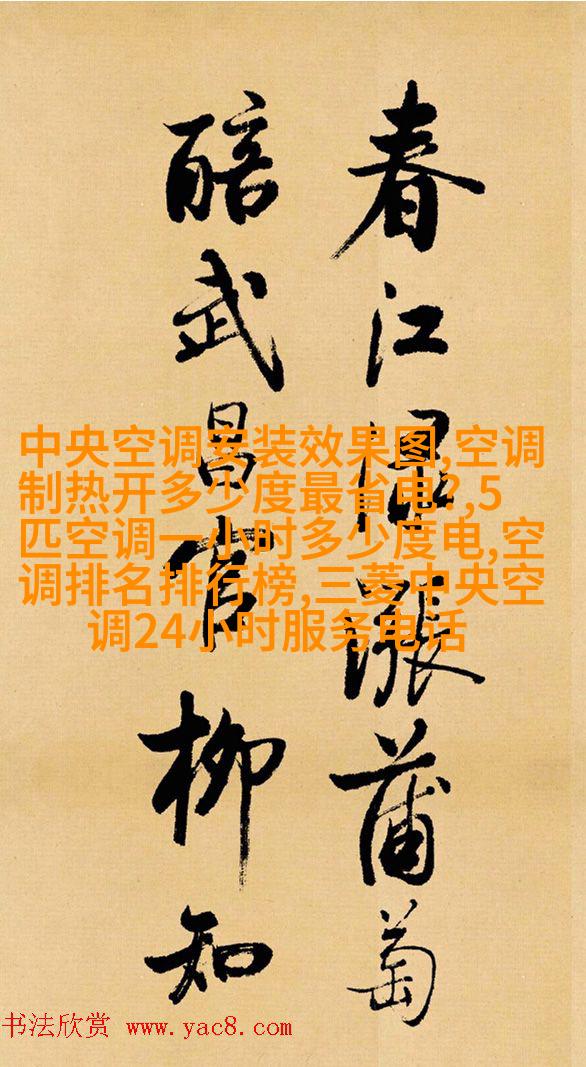 春江渌涨蒲萄
醅武昌官柳知
中央空调安装效果图,空调
制热开多少度最省电?,5
匹空调一小时多少度电,空
调排名排行榜,三菱中央空
调24小时服务电话
书法欣赏 www.yac8.com